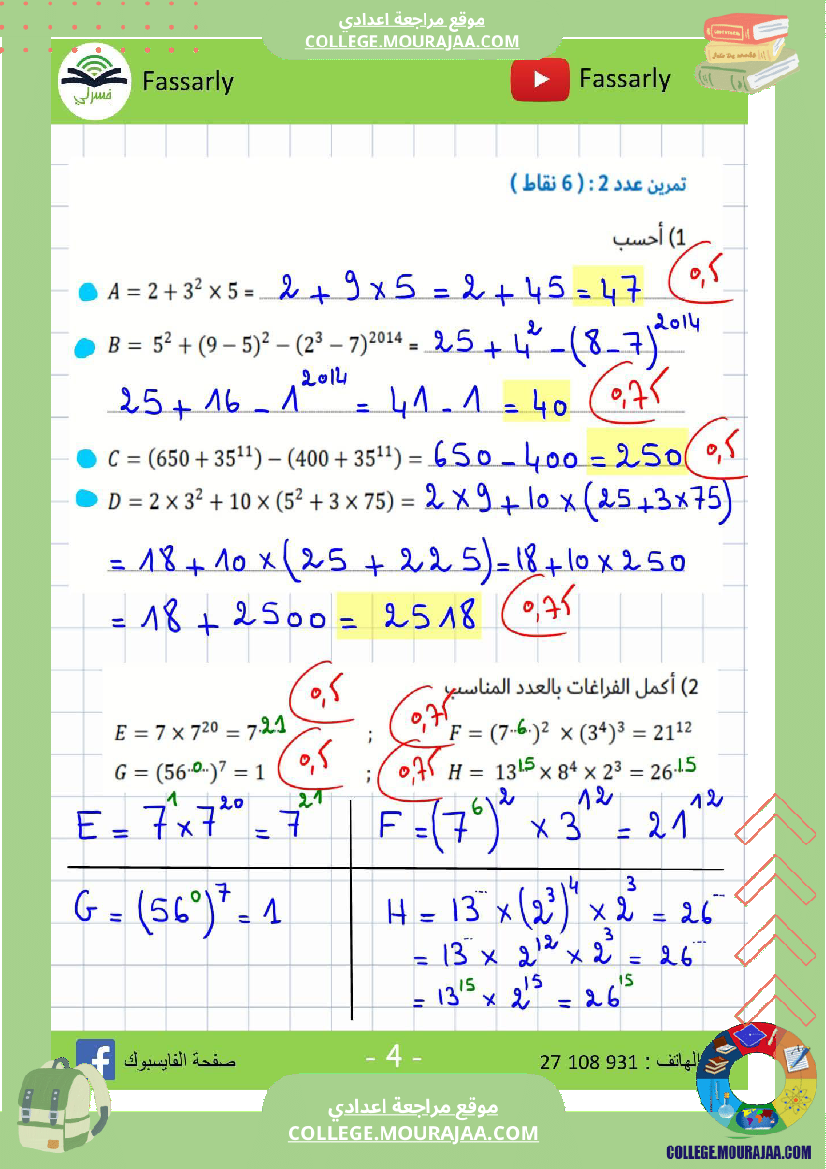 موقع مراجعة اعدادي
COLLEGE.MOURAJAA.COM
فسرلي Fassarly Fassarly
تمرين عدد 2 : ( 6 نقاط )
1) أحسب
A = 2 + 3² × 5 = 2 + 9 × 5 = 2 + 45 = 47 0,5
B = 5² + (9 − 5)² − (2³ − 7)²⁰¹⁴ = 25 + 4² − (8 − 7)²⁰¹⁴
25 + 16 − 1²⁰¹⁴ = 41 − 1 = 40 0,75
C = (650 + 35¹¹) − (400 + 35¹¹) = 650 − 400 = 250 0,5
D = 2 × 3² + 10 × (5² + 3 × 75) = 2 × 9 + 10 × (25 + 3 × 75)
= 18 + 10 × (25 + 225) = 18 + 10 × 250
= 18 + 2500 = 2518 0,75
2) أكمل الفراغات بالعدد المناسب
E = 7 × 7²⁰ = 7²¹ 0,5 ; 0,75 F = (7⁶)² × (3⁴)³ = 21¹²
G = (56⁰)⁷ = 1 0,5 ; 0,75 H = 13¹⁵ × 8⁴ × 2³ = 26¹⁵
E = 7¹ × 7²⁰ = 7²¹
F = (7⁶)² × 3¹² = 21¹²
G = (56⁰)⁷ = 1
H = 13˙˙˙ × (2³)⁴ × 2³ = 26˙˙˙
= 13˙˙˙ × 2¹² × 2³ = 26˙˙˙
= 13¹⁵ × 2¹⁵ = 26¹⁵
صفحة الفايسبوك - 4 - الهاتف : 27 108 931
موقع مراجعة اعدادي
COLLEGE.MOURAJAA.COM
COLLEGE.MOURAJAA.COM